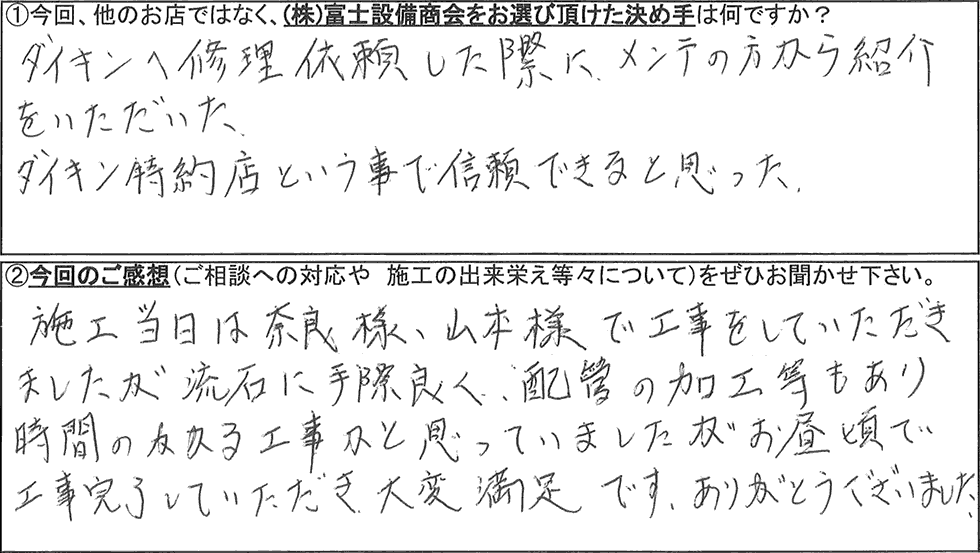 ①今回、他のお店ではなく、(株)富士設備商会をお選び頂けた決め手は何ですか？
ダイキンへ修理依頼した際に、メンテの方から紹介
をいただいた。
ダイキン特約店という事で信頼できると思った。
②今回のご感想(ご相談への対応や　施工の出来栄え等々について)をぜひお聞かせ下さい。
施工当日は奈良様、山本様で工事をしていただき
ましたが流石に手際良く、配管の加工等もあり
時間のかかる工事かと思っていましたがお昼頃で
工事完了していただき、大変満足です。ありがとうございました。